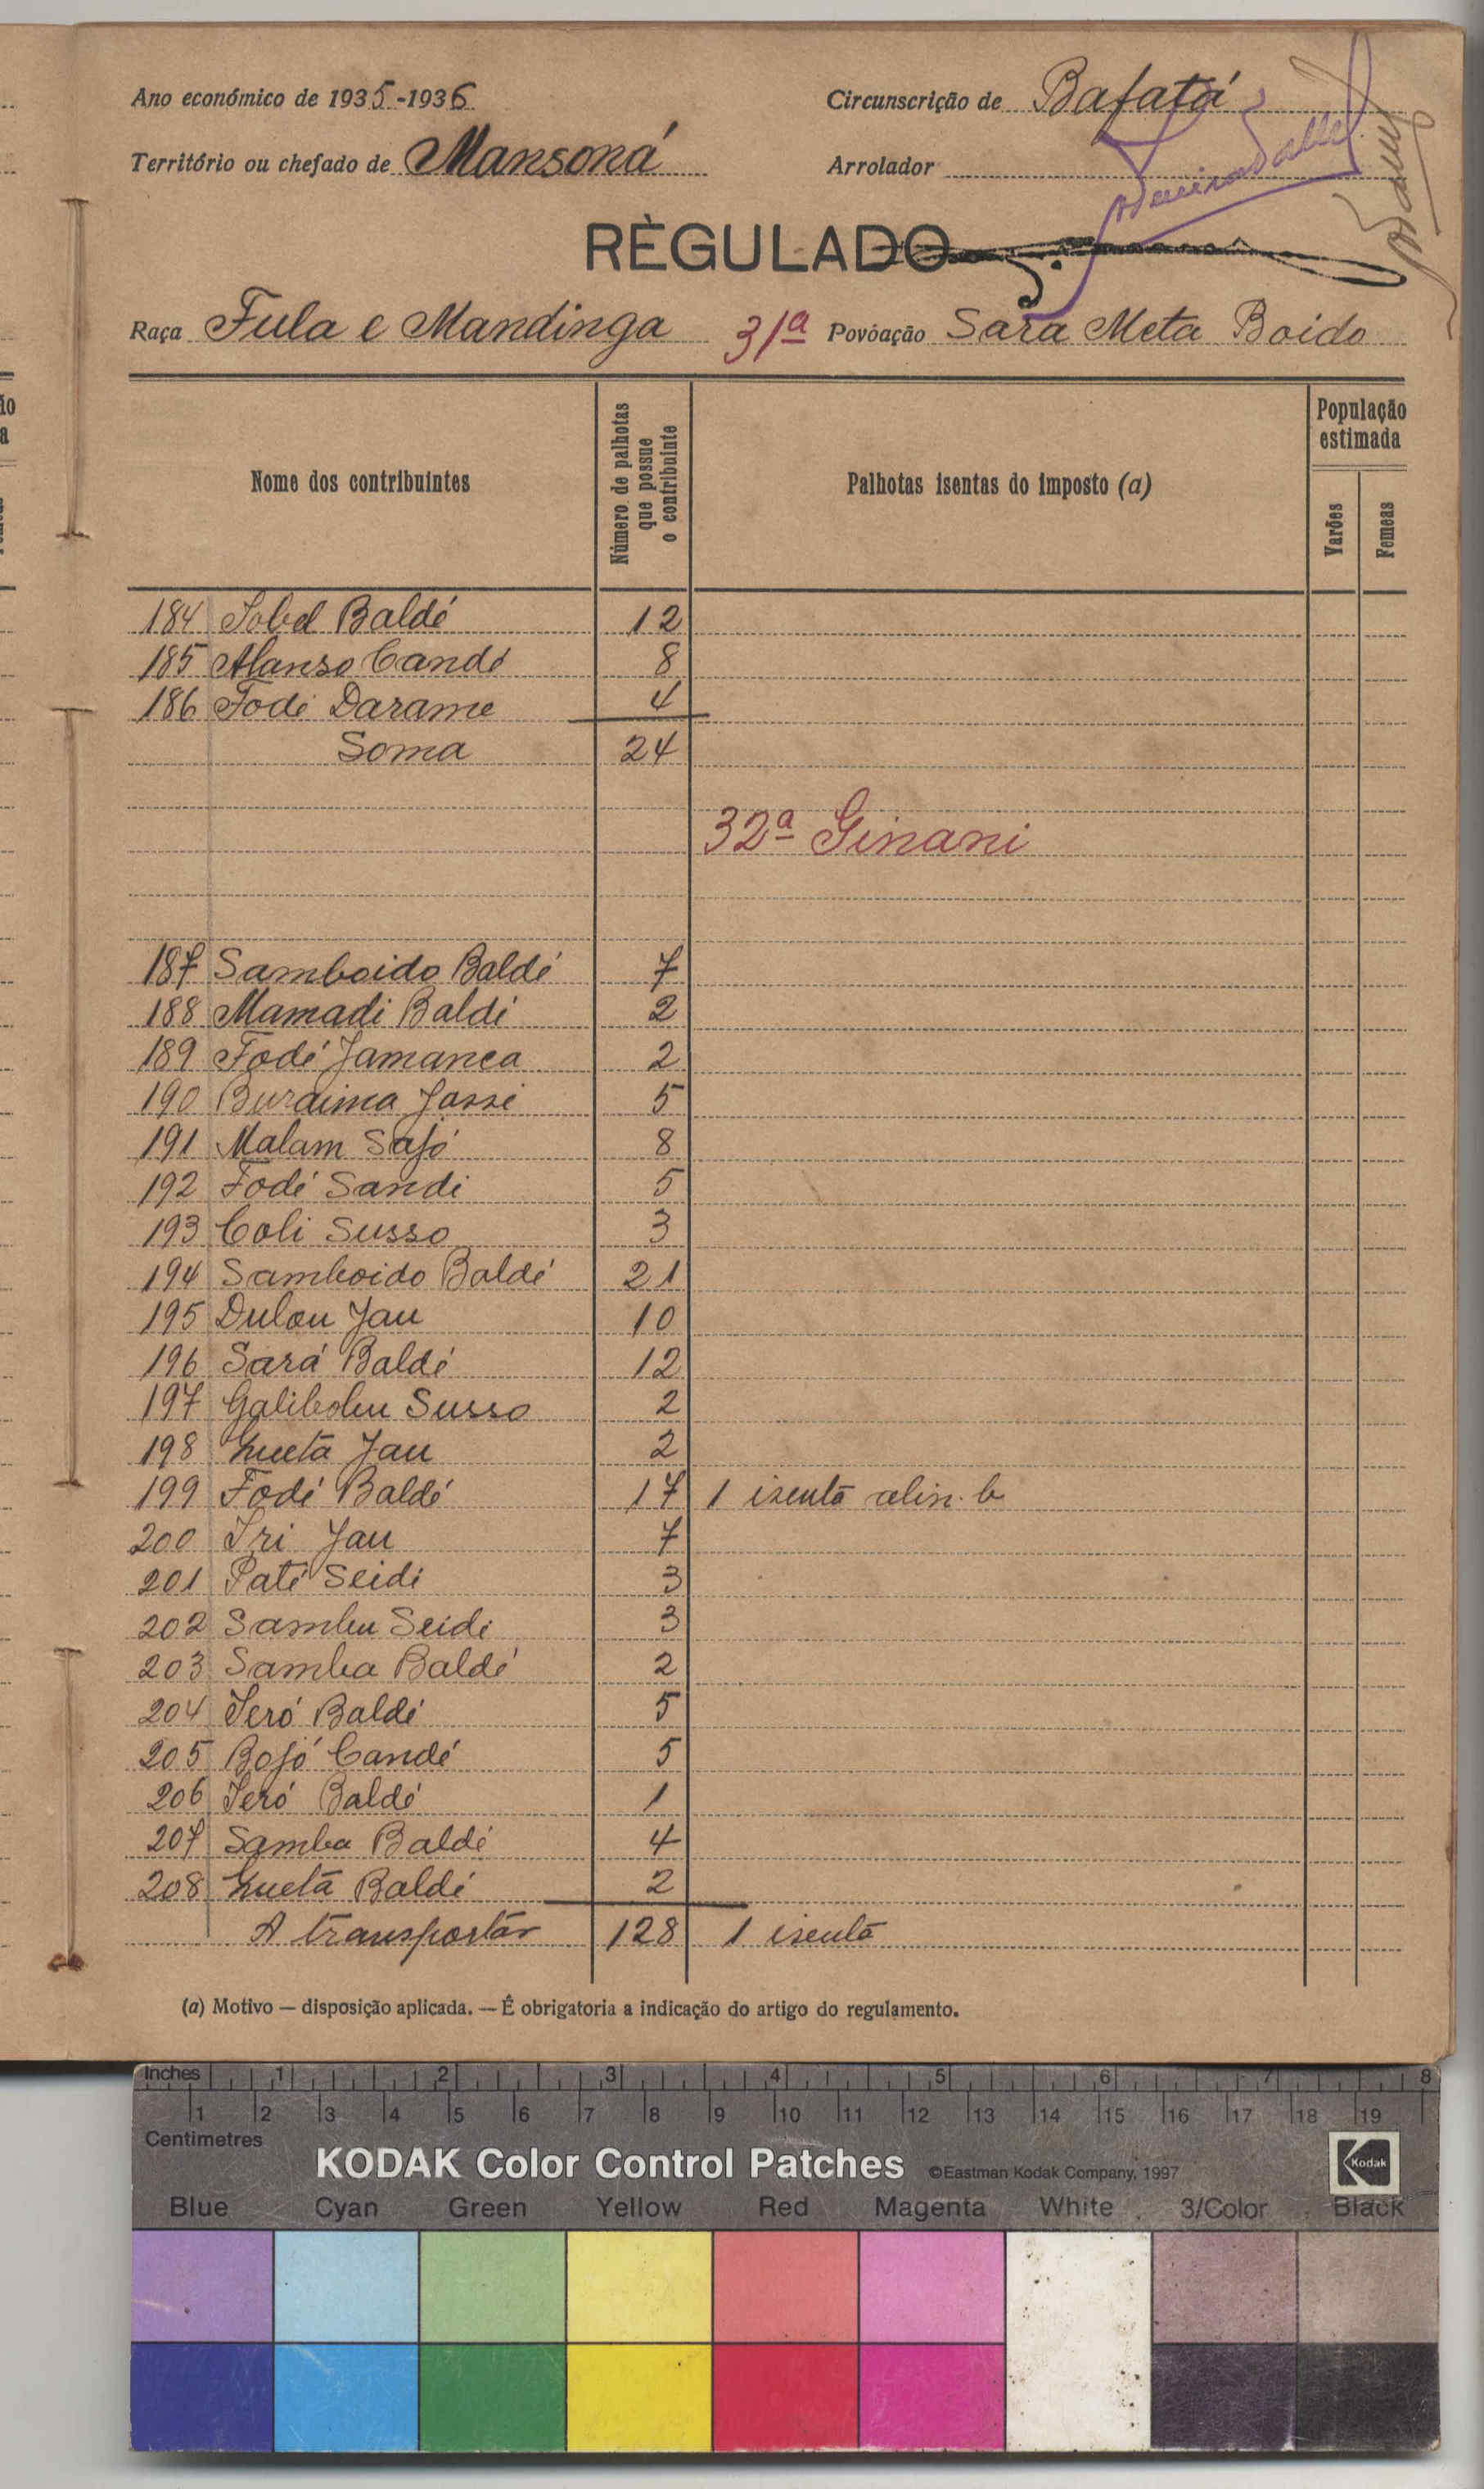 Ano económico de 1935-1936
Circunscrição de Bafatá
Território ou chefado de Mansoná
Arrolador
RÈGULADO
Raça Fula e Mandinga 31ª Povòação Sara Meta Boido
Nome dos contribuintes
Número de palhotas que possue o contribuinte
Palhotas isentas do imposto (a)
População estimada
Varões
Femeas
184 Sobel Baldé 12
185 Mansо Candé 8
186 Fodé Darame 4
Soma 24
32ª Ginani
187 Samboido Baldé 7
188 Mamadi Baldé 2
189 Fodé Jamanca 2
190 Buraima Jassi 5
191 Malam Safó 8
192 Fodé Sandi 5
193 Coli Susso 3
194 Samboido Baldé 21
195 Dulou Jau 10
196 Sará Baldé 12
197 Susso 2
198 Gueta Jau 2
199 Fodé Baldé 17 1 isenta alin. b
200 Iri Jau 7
201 Paté Seidi 3
202 Sambu Seidi 3
203 Samba Baldé 2
204 Ieró Baldé 5
205 Bojó Candé 5
206 Ieró Baldé 1
207 Samba Baldé 4
208 Gueta Baldé 2
A transportar 128 1 isenta
(a) Motivo — disposição aplicada. — Ê obrigatoria a indicação do artigo do regulamento.
Inches 1 2 3 4 5 6 7 8
1 2 3 4 5 6 7 8 9 10 11 12 13 14 15 16 17 18 19
Centimetres
KODAK Color Control Patches ©Eastman Kodak Company, 1997 Kodak
Blue Cyan Green Yellow Red Magenta White 3/Color Black